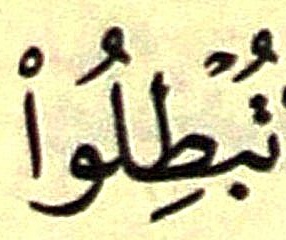 تُبْطِلُواْ